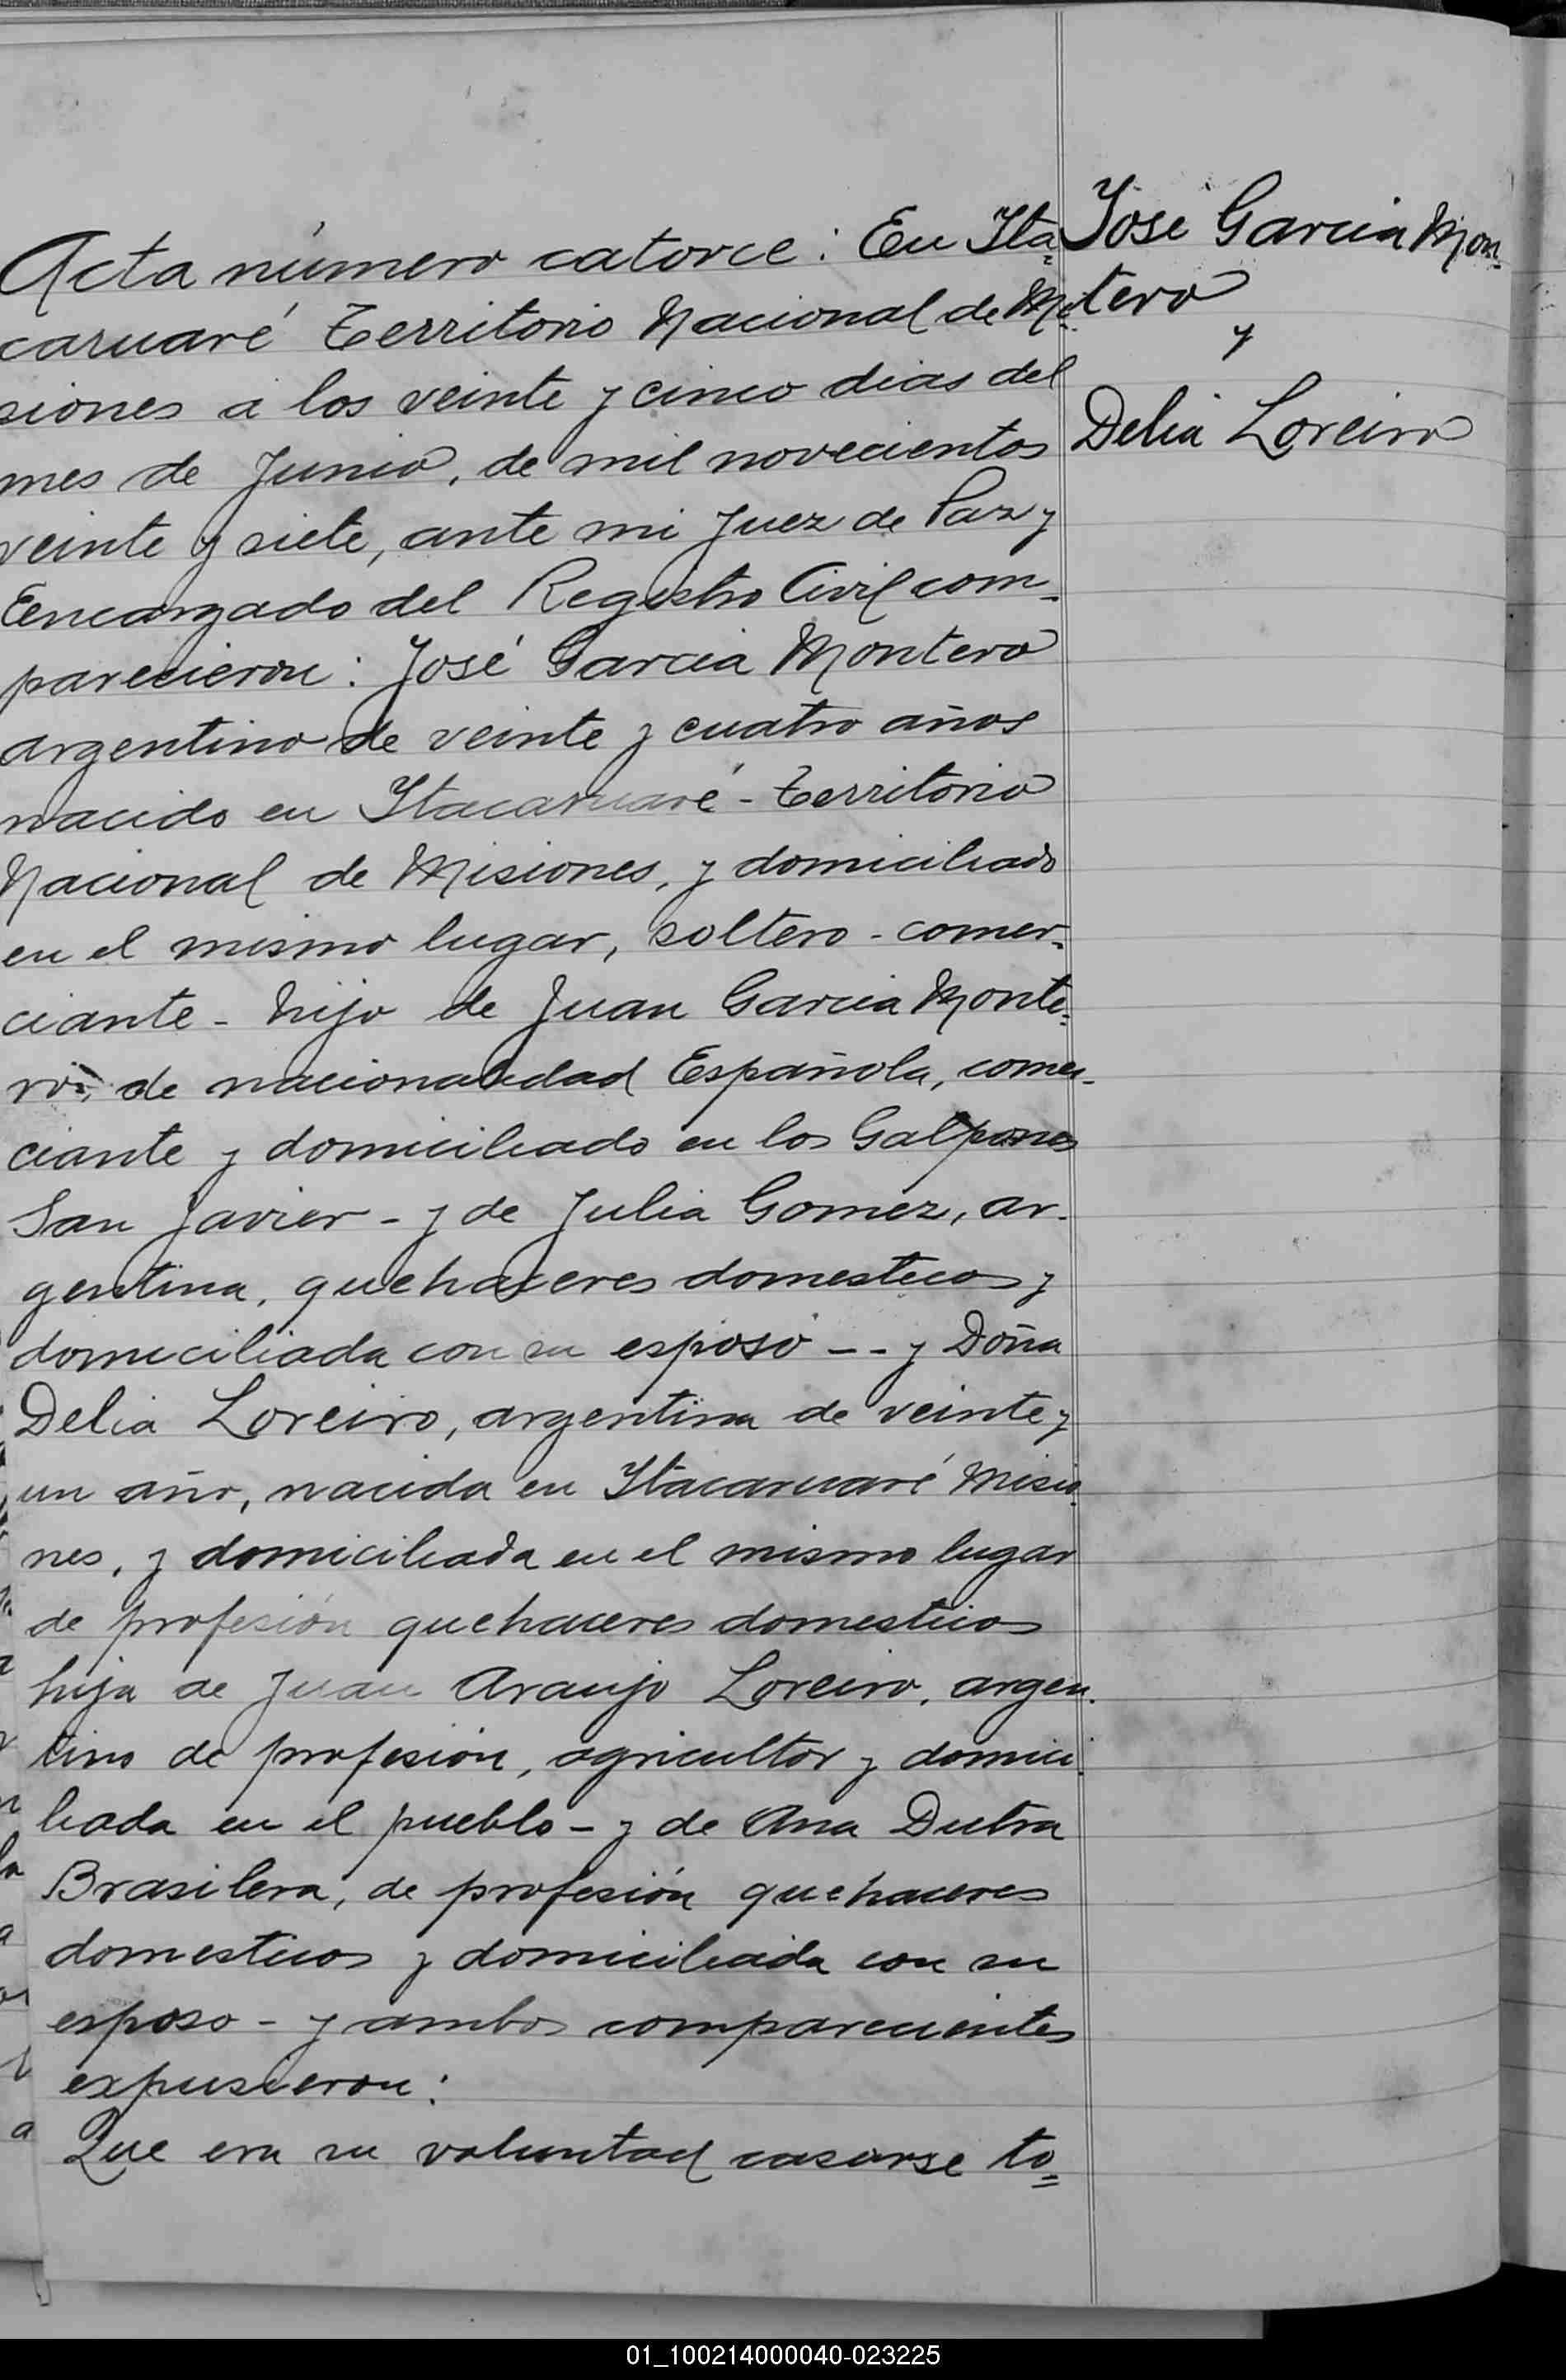 Acta número catorce: En Ita=
caruaré Territorio Nacional de Mi=
siones á los veinte y cinco dias del
mes de Junio, de mil novecientos
veinte y siete, ante mi Juez de Paz y
Encargado del Registro Civil com-
parecieron: José Garcia Montero
argentino de veinte y cuatro años
nacido en Itacaruaré - Territorio
Nacional de Misiones, y domiciliado
en el mismo lugar, soltero - comer=
ciante - hijo de Juan Garcia Monte=
ro de nacionalidad Española, comer-
ciante y domiciliado en los Galpones
San Javier - y de Julia Gomez, ar-
gentina, quehaceres domesticos y
domiciliada con su esposo -- y Doña
Delia Loreiro, argentina de veinte y
un año, nacida en Itacaruaré Misio=
nes, y domiciliada en el mismo lugar
de profesión quehaceres domesticos
hija de Juan Araujo Loreiro, argen-
tino de profesión, agricultor y domici-
liada en el pueblo - y de Ana Dutra
Brasilera, de profesión quehaceres
domesticos y domiciliada con su
esposo - y ambos comparecientes
expusieron:
Que era su voluntad casarse to=
José Garcia Mon=
tero
y
Delia Loreiro
01_100214000040-023225